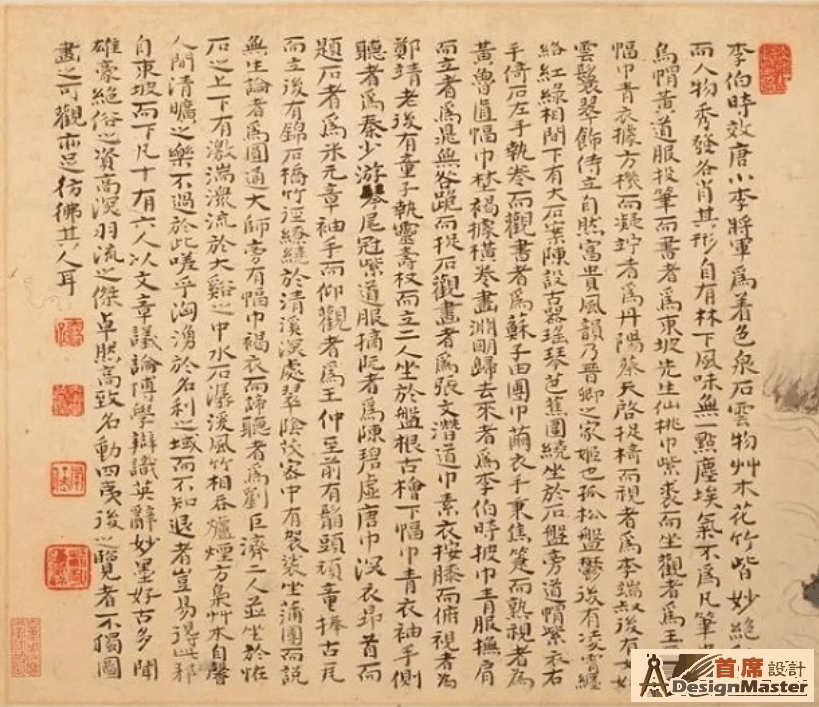 李伯時效唐小李將軍爲着色泉石雲物艸木花竹皆妙絕
而人物秀發各肖其形自有林下風味無一點塵埃氣不爲凡筆
烏帽黃道服投筆而書者爲東坡先生仙桃巾紫裘而坐觀者爲王
幅巾青衣據方機而凝竚者爲丹陽蔡天啓捉椅而視者爲李端叔後有女
雲鬟翠飾侍立自然富貴風韻乃晉卿之家姬也孤松盤鬱後有凌霄纏
絡紅綠相間下有大石案陳設古器瑤琴芭蕉圍繞坐於石盤旁道帽紫衣右
手倚石左手執卷而觀書者爲蘇子由團巾繭衣手秉焦箑而熟視者爲
黃魯直幅巾埜褐據橫卷畫淵明歸去來者爲李伯時披巾青服撫肩
而立者爲晁無咎跪而捉石觀畫者爲張文潛道巾素衣按膝而俯視者爲
鄭靖老後有童子執靈壽杖而立二人坐於盤根古檜下幅巾青衣袖手側
聽者爲秦少游琴尾冠紫道服摘阮者爲陳碧虛唐巾深衣昂首而
題石者爲米元章袖手而仰觀者爲王仲至前有鬅頭頑童捧古瓦
而立後有錦石橋竹徑繚繞於清溪深處翠陰茂密中有袈裟坐蒲團而說
無生論者爲圓通大師旁有幅巾褐衣而諦聽者爲劉巨濟二人並坐於恠
石之上下有激湍潨流於大谿之中水石潺湲風竹相吞爐煙方裊艸木自馨
人間清曠之樂不過於此嗟乎洶湧於名利之域而不知退者豈易得此邪
自東坡而下凡十有六人以文章議論博學辯識英辭妙墨好古多聞
雄豪絕俗之資高深羽流之傑卓然高致名動四夷後之覽者不獨圖
畫之可觀亦足彷彿其人耳
首席設計
DesignMaster